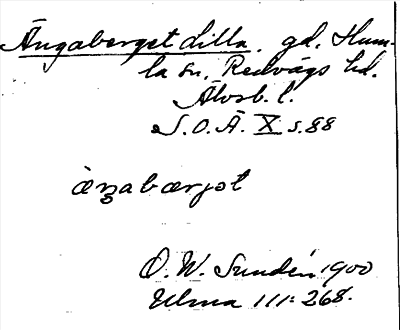 Ängaberget lilla. gd. Hum-
la sn, Redvägs hd.
Älvsb. l.
S.O.Ä. X s. 88
æŋabærjət
O. W. Sundén 1900
Ulma 111:268.